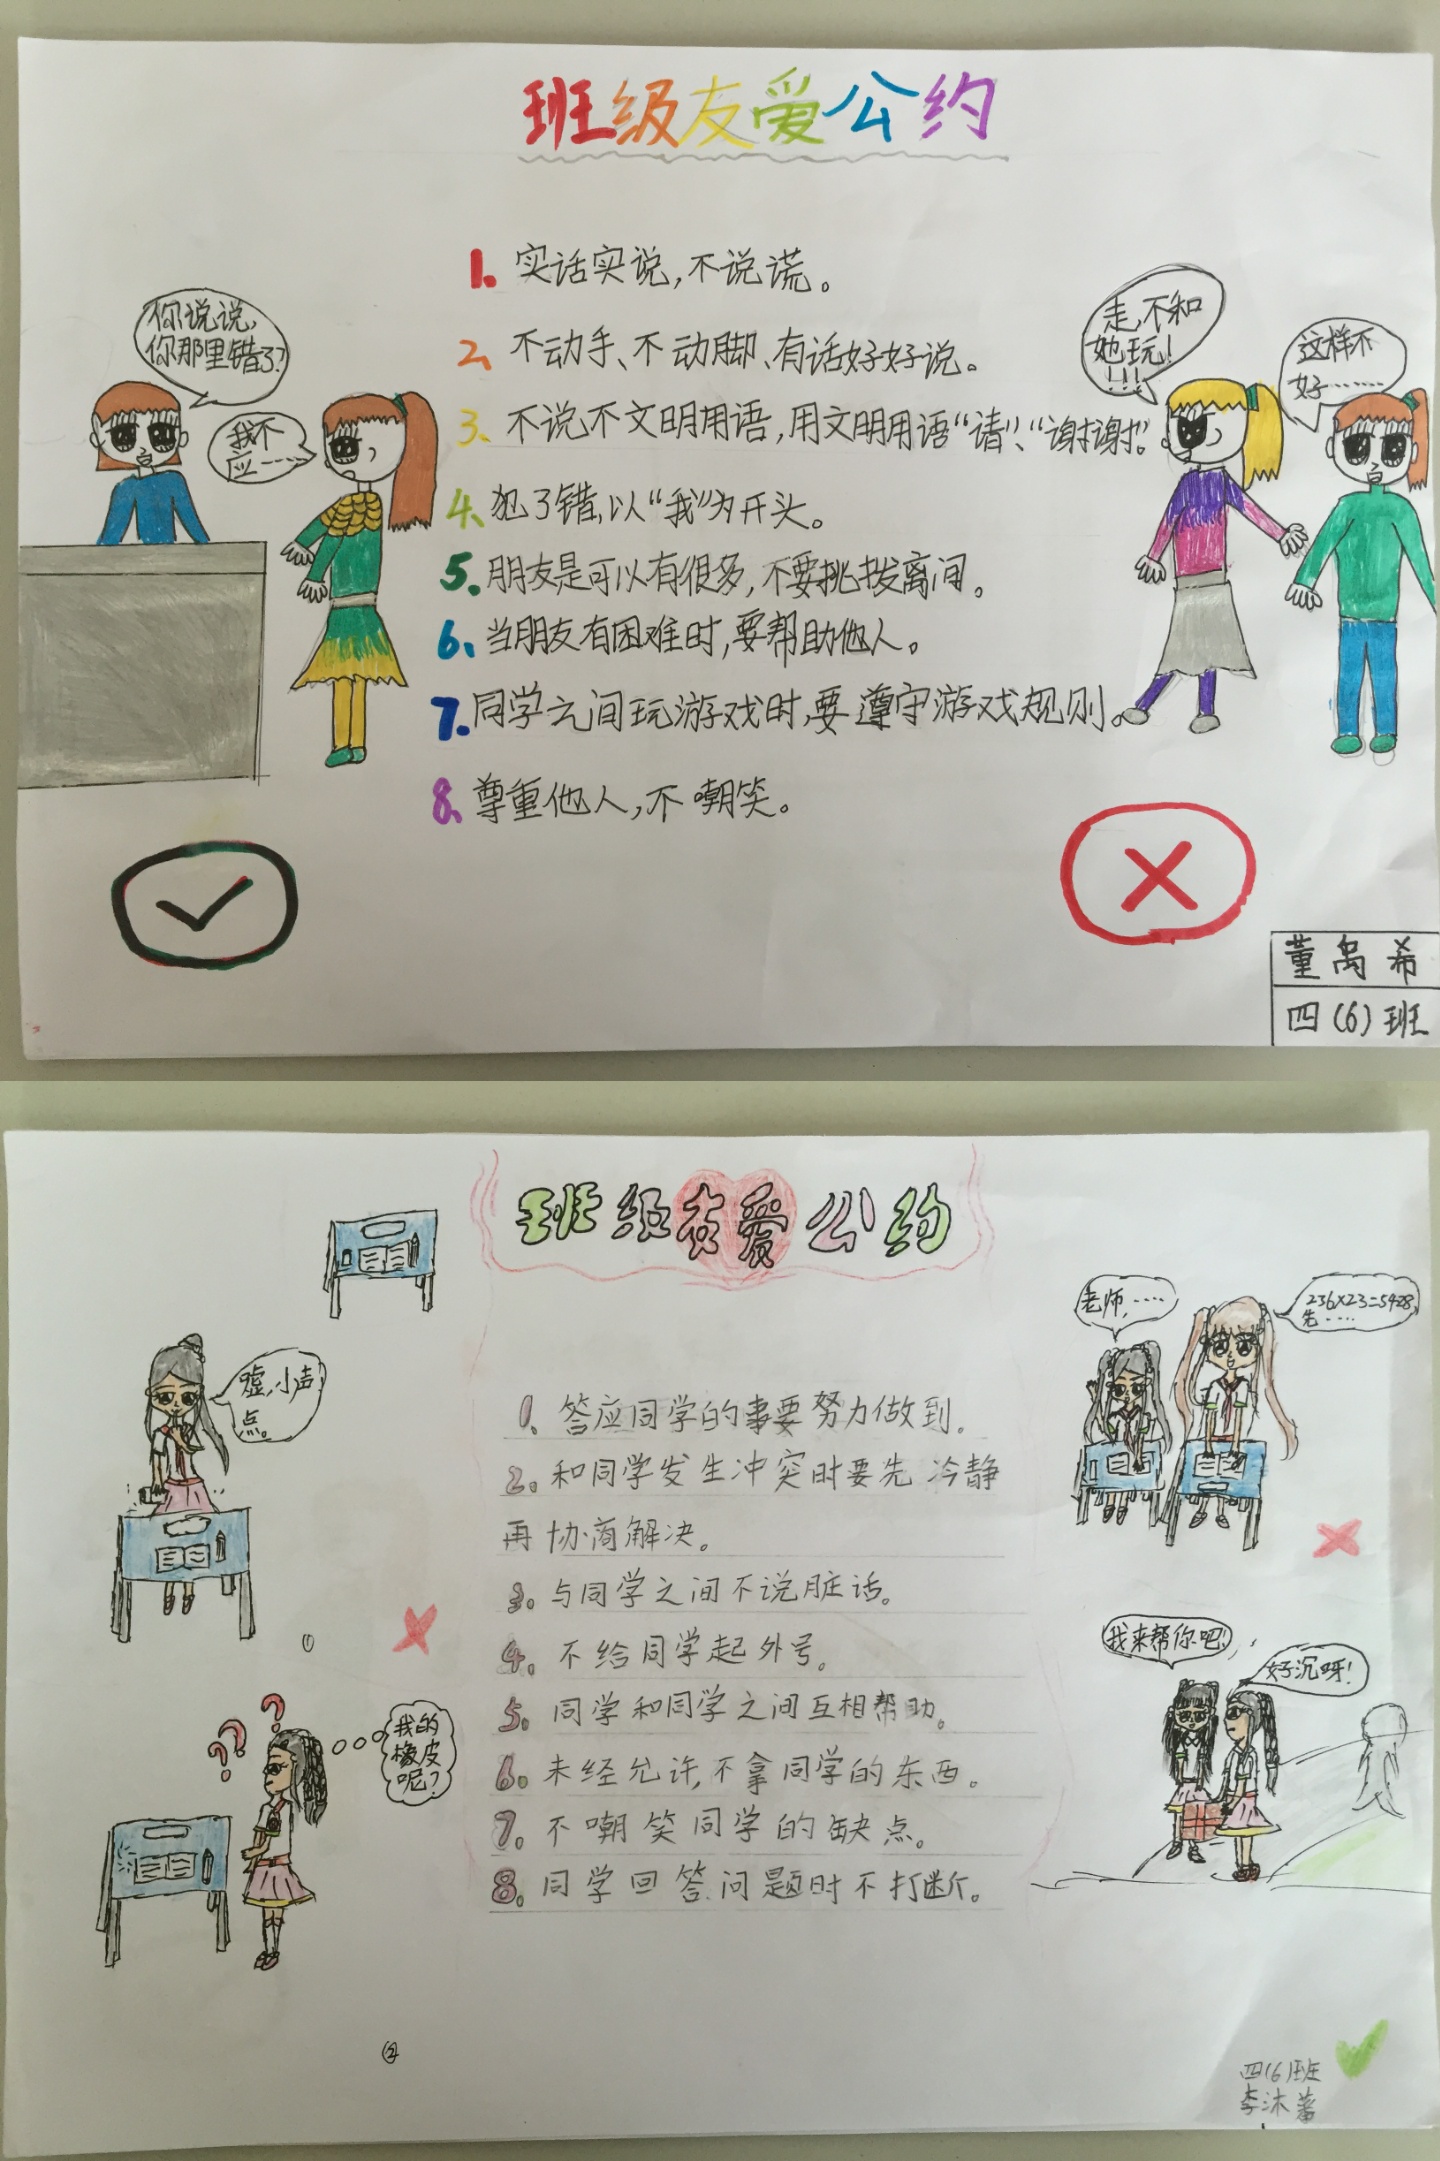 班级友爱公约
1.实话实说,不说谎。
2、不动手、不动脚、有话好好说。
3、不说不文明用语,用文明用语“请”、“谢谢”。
4、犯了错,以“我”为开头。
5.朋友是可以有很多,不要挑拨离间。
6、当朋友有困难时,要帮助他人。
7.同学之间玩游戏时,要遵守游戏规则。
8、尊重他人,不嘲笑。
你说说,
你那里错了?
我不
应……
走,不和
她玩!
!!!
这样不
好……
董禹希
四(6)班
班级友爱公约
嘘,小声
点。
①
我的
橡皮
呢?
②
1、答应同学的事要努力做到。
2.和同学发生冲突时要先冷静
再协商解决。
3.与同学之间不说脏话。
4.不给同学起外号。
5.同学和同学之间互相帮助。
6.未经允许,不拿同学的东西。
7.不嘲笑同学的缺点。
8.同学回答问题时不打断。
老师,……
236×23=5428,
先……
我来帮你吧!
好沉呀!
四(6)班
李沐蕃